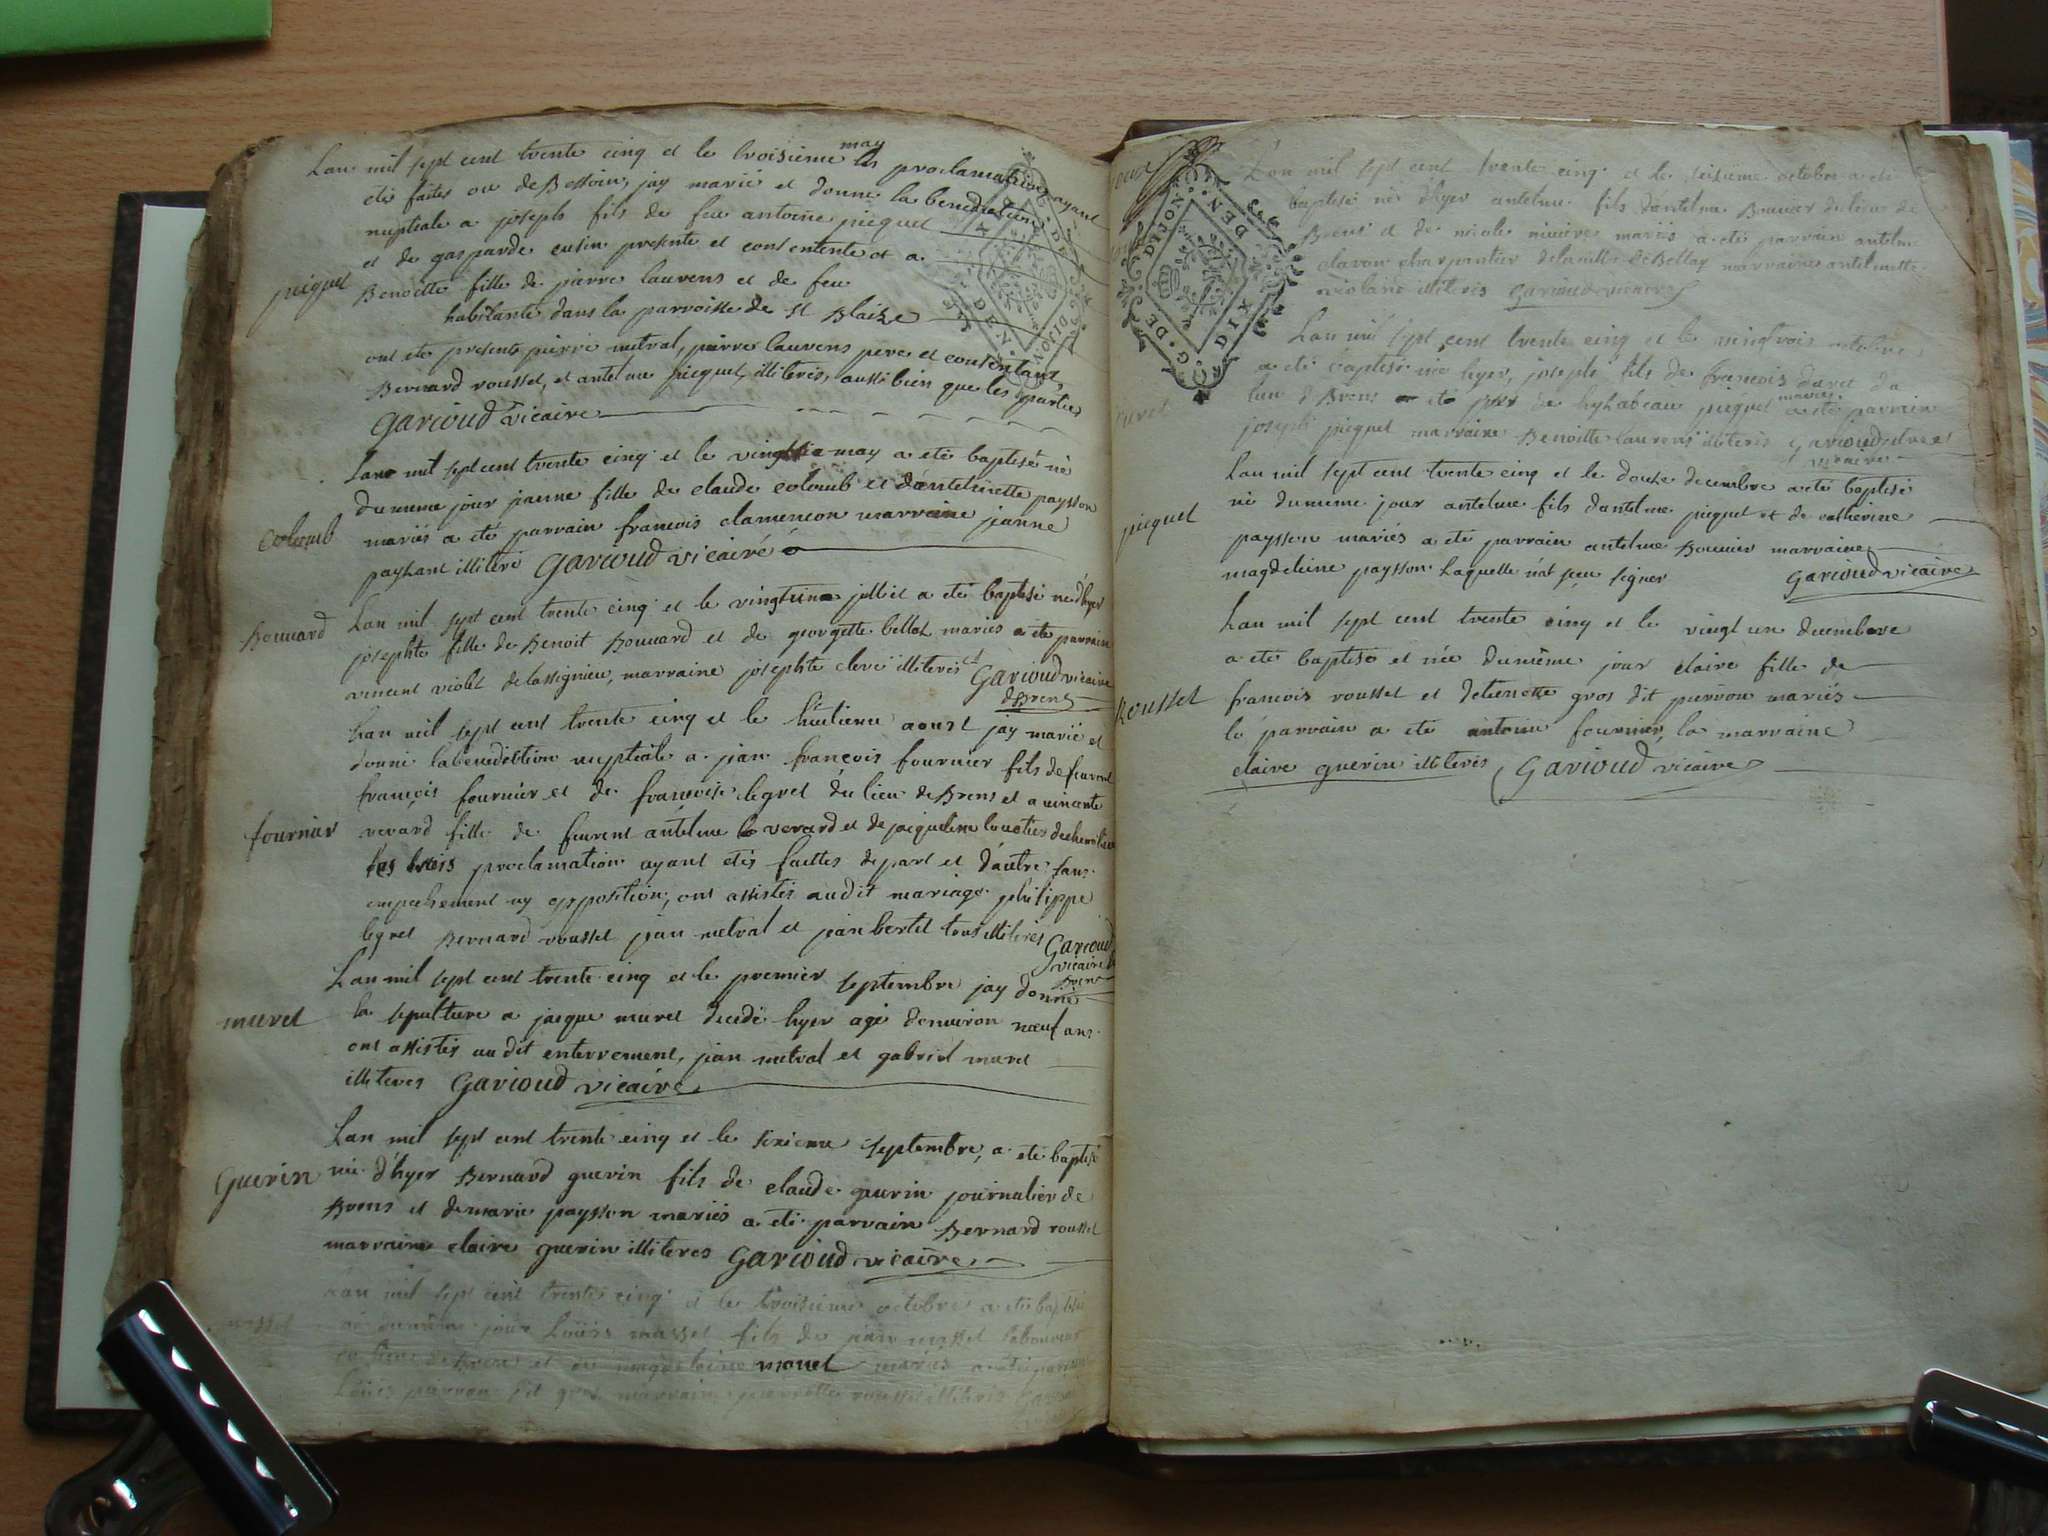 Lan mil sept cent trente cinq et le troisieme may les proclamations ayant
été faites ou de Bessoin, jay marié et donne la benediction
nuptiale a joseph fils de feu antoine picquet
et de gasparde cusin presente et consentente et a
picquet
Benoitte fille de pierre laurens et de feu
habitante dans la parroisse de st Blaize
ont ete presents pierre metral, pierre laurens pere et consentant,
Bernard rousset, et antelme picquet, illiterés, aussi bien que les parties
Garioud vicaire
Lan mil sept cent trente cinq et le may a eté baptisé né
du meme jour janne fille de claude colomb et dantelmette paysson
Colomb
mariés a eté parrain francois clamencon marraine janne
illiteré Garioud vicaire
Bouuard
Lan mil sept cent trente cinq et le vingtun jullet a eté baptisé né dhyer
josephte fille de Benoit Bouuard et de georgette bellet mariés a ete parrain
vincent violet de lassignieu, marraine josephte clerc illiterés Garioud vicaire
de Brens
Lan mil sept cent trente cinq et le huitieme aoust jay marié et
donné la benediction nuptiale a jan françois fournier fils de feurent
françois fournier et de francoise legret du lieu de Brens et a vincente
fournier
verard fille de feurent antelme verard et de jacqueline
les trois proclamation ayant etés faittes de part et dautre sans
empechement ny opposition, ont assistés audit mariage philippe
legret Bernard rousset jean metral et jean bertet tous illiterés Garioud
vicaire de
Brens
Lan mil sept cent trente cinq et le premier septembre jay donné
muret
la sepulture a jacque muret decedé hyer agé denuiron noeuf ans
ont assistés audit enterrement, jean metral et gabriel muret
illiteres Garioud vicaire
Lan mil sept cent trente cinq et le sixieme septembre, a eté baptisé
Guerin
né d'hyer Bernard guerin fils de claude guerin journalier de
Brens et de marie paysson mariés a eté parrain Bernard rousset
marraine claire guerin illiteres Garioud vicaire
Lan mil sept cent trente cinq et le troisieme octobre a eté baptisé
né du même jour Louis masset fils de jean masset laboureur
de Brens et de magdelaine monet mariés a eté parrain
Louis perron dit gros marraine pierrette rousset illiterés
G. DE DIJON
DEN. DIX
L'an mil sept cent trente cinq et le seisieme octobre a eté
baptisé né dhyer antelme fils dantelme Bouuier du lieu de
Brens et de nicole miviere mariés a eté parrain antelme
clavon charpentier de la ville de Bellay marraine antelmette
violane illiterés Garioud vicaire
Lan mil sept cent trente cinq et le vingtrois octobre
a eté baptisé né hyer, joseph fils de francois duret du
lieu d Brens et de picquet mariés a eté parrain
joseph picquet marraine Benoitte laurens illiterés Garioud
vicaire
Lan mil sept cent trente cinq et le douze decembre a eté baptisé
né du meme jour antelme fils dantelme picquet et de catherine
picquet
paysson mariés a eté parrain antelme Bouuier marraine
magdeleine paysson laquelle nat sçeu signer Garioud vicaire
Lan mil sept cent trente cinq et le vingt un decembere
a eté baptisé et née du même jour claire fille de
Rousset
francois rousset et detienette gros dit perron mariés
le parrain a eté antoine fournier, la marraine
claire guerin illiterés Garioud vicaire